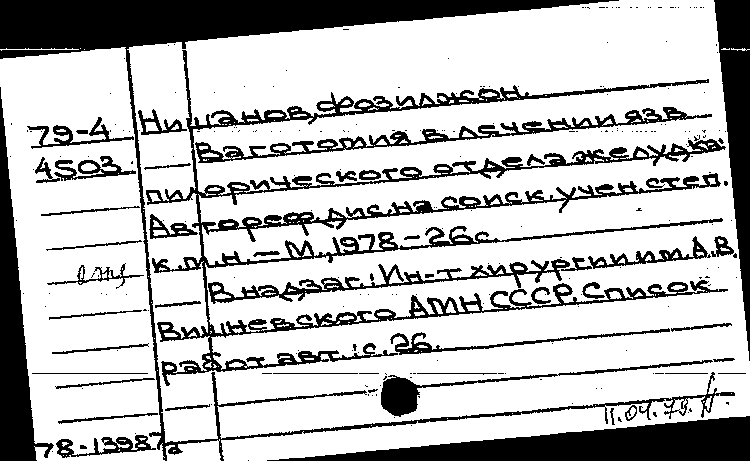 79-4 Нишанов, Фозилжон.
4503 Ваготомия в лечении язв
пилорического отдела желудка:
Автореф. дис. на соиск. учен. степ.
к.м.н. — М., 1978. — 26 с.
В надзаг.: Ин-т хирургии им. А.В.
Вишневского АМН СССР. Список
работ авт.: с. 26.
11.04.79.
78-13987а